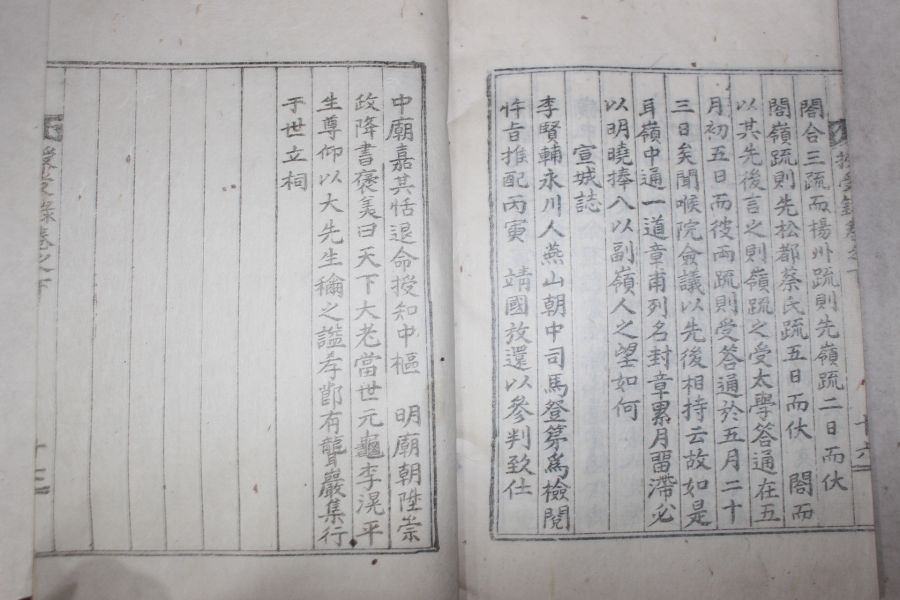 閤合三疏而楊州疏則先嶺疏二日而伏
閤嶺疏則先松都蔡氏疏五日而伏 閤而
以其先後言之則嶺疏之受太學答通在五
月初五日而彼兩疏則受答通於五月二十
三日矣聞喉院僉議以先後相持云故如是
耳嶺中通一道章甫列名封章累月留滯必
以明曉捧入以副嶺人之望如何
宣城誌
李賢輔永川人燕山朝中司馬登第爲檢閱
忤旨推配丙寅 靖國放還以參判致仕
十六
中廟嘉其恬退命授知中樞 明廟朝陞崇
政降書褒美曰天下大老當世元龜李滉平
生尊仰以大先生稱之謚孝節有聾巖集行
于世立祠